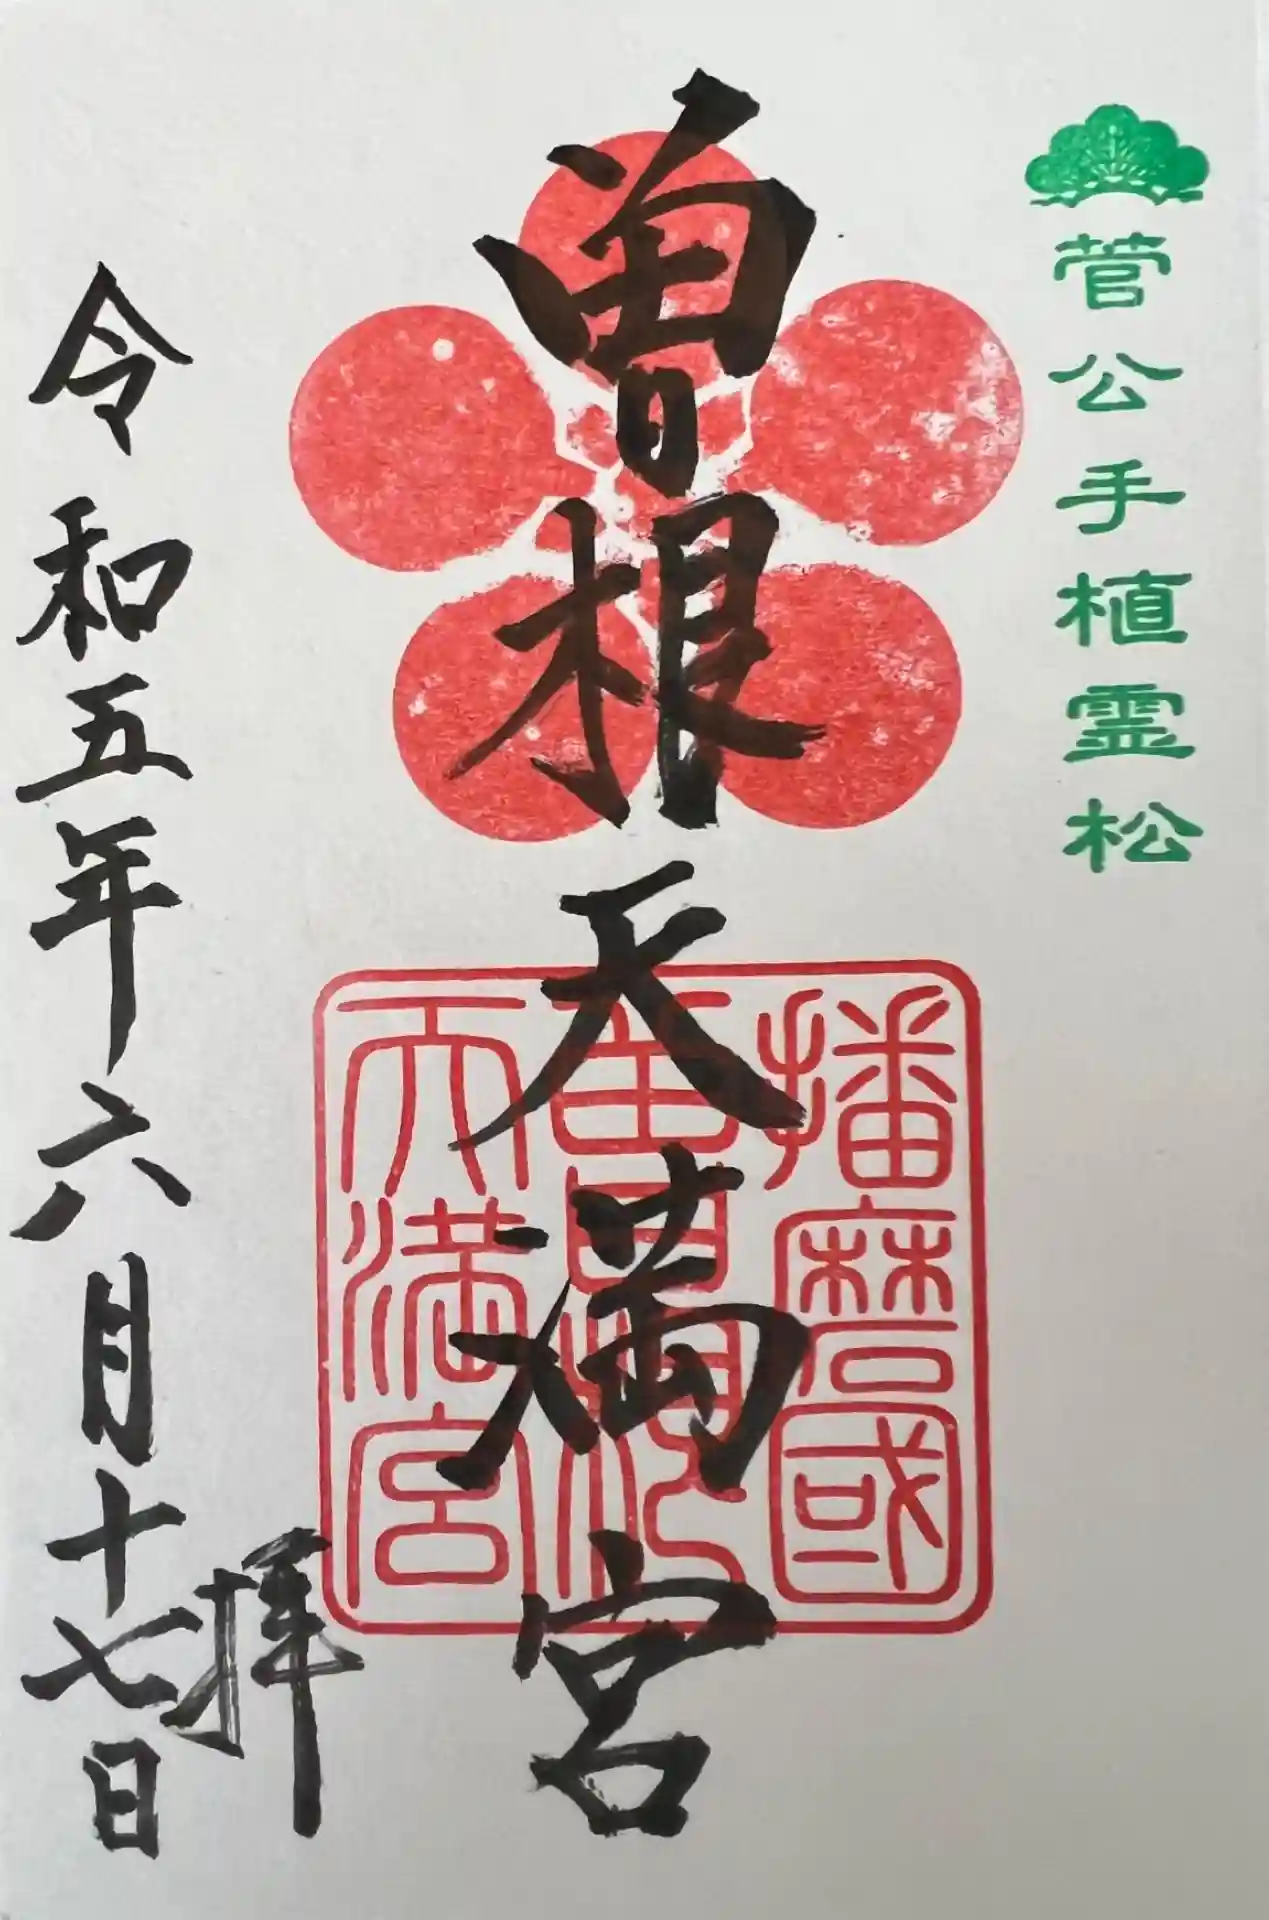 菅公手植霊松
曽根天満宮
播磨國
曽根
天満宮
拝
令和五年六月十七日